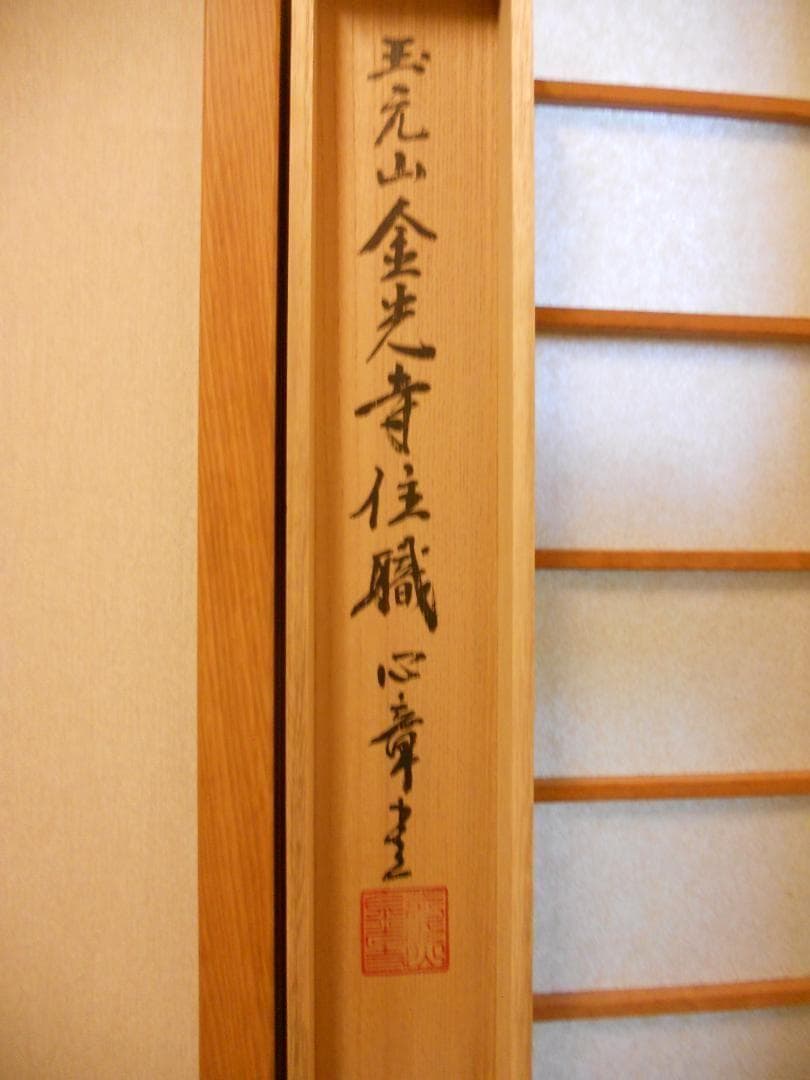 玉元山金光寺住職心章書